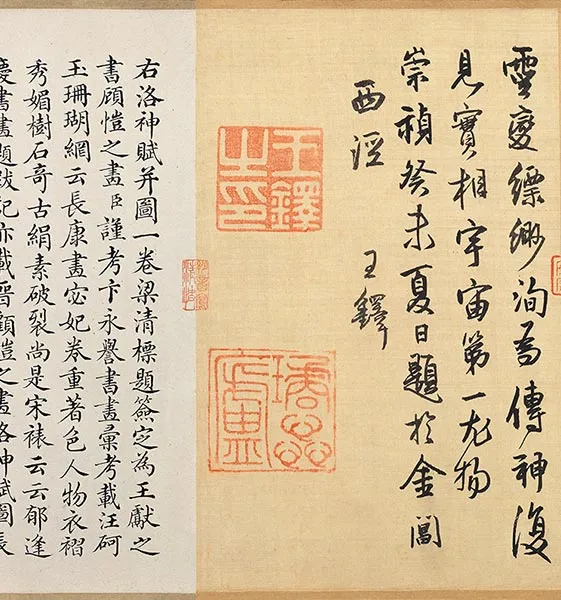 靈變縹緲洵為傳神復
見寶相宇宙第一尤物
崇禎癸未夏日題於金閶
西涇 王鐸
王鐸之印
右洛神賦并圖一卷梁清標題簽定為王獻之
書顧愷之畫臣謹考卞永譽書畫彙考載汪砢
玉珊瑚網云長康畫宓妃卷重著色人物衣褶
秀媚樹石奇古絹素破裂尚是宋裱云云郁逢
慶書畫題跋記亦載晉顧愷之畫洛神賦圖長